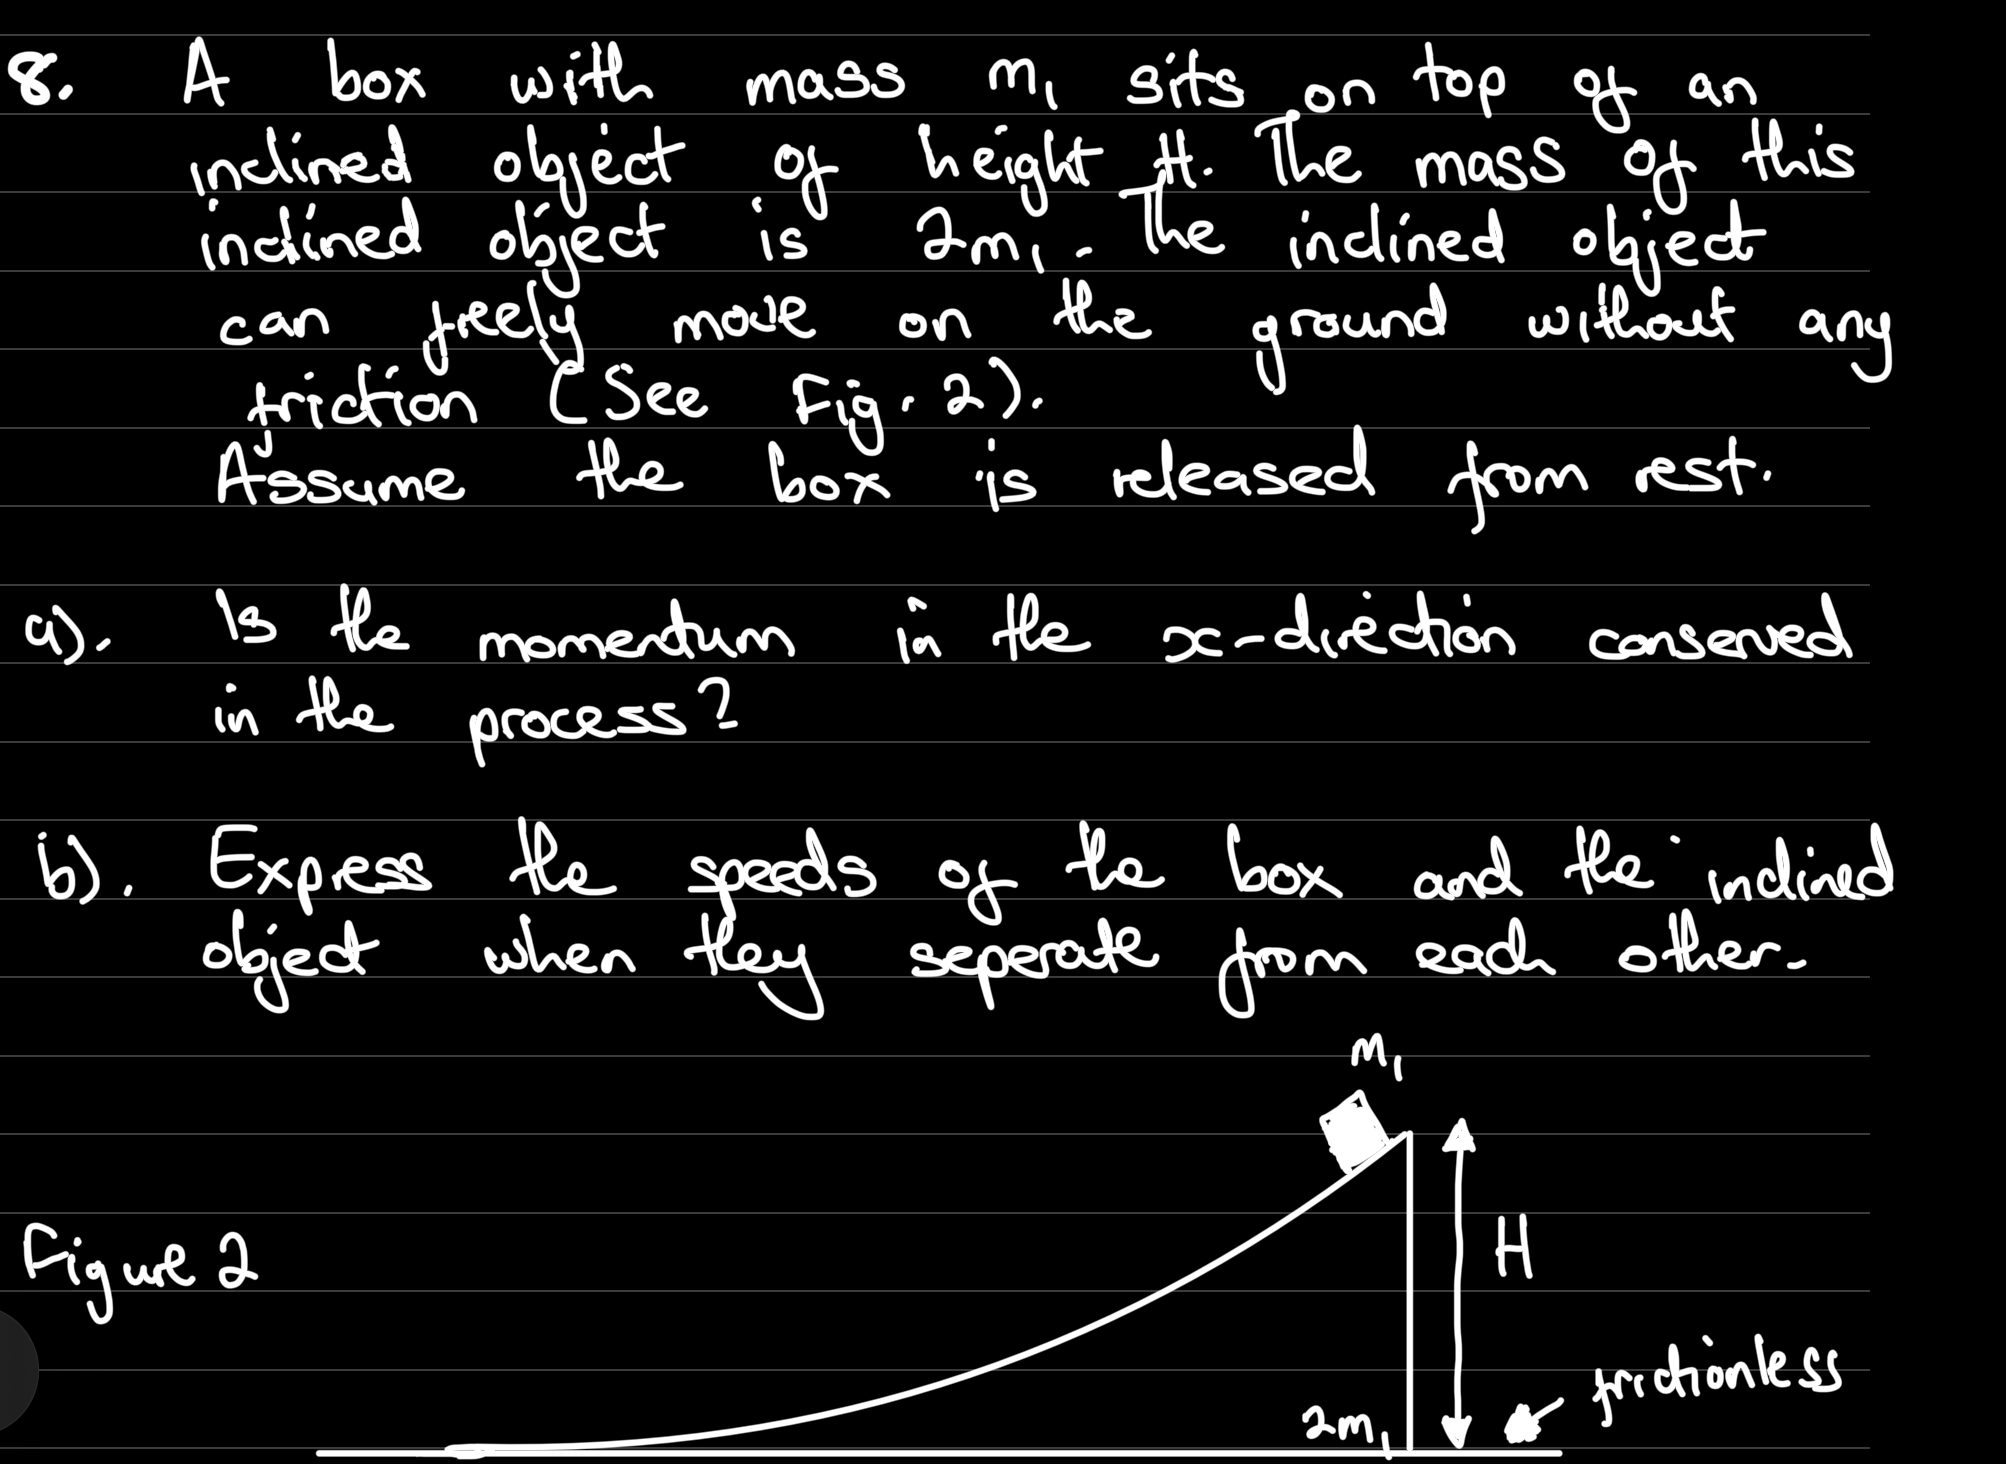 8. A box with mass m₁ sits on top of an
inclined object of height H. The mass of this
inclined object is 2m₁. The inclined object
can freely move on the ground without any
friction (See Fig. 2).
Assume the box is released from rest.
a). Is the momentum in the x-direction conserved
in the process?
b). Express the speeds of the box and the inclined
object when they seperate from each other.
m₁
H
Figure 2
frictionless
2m₁